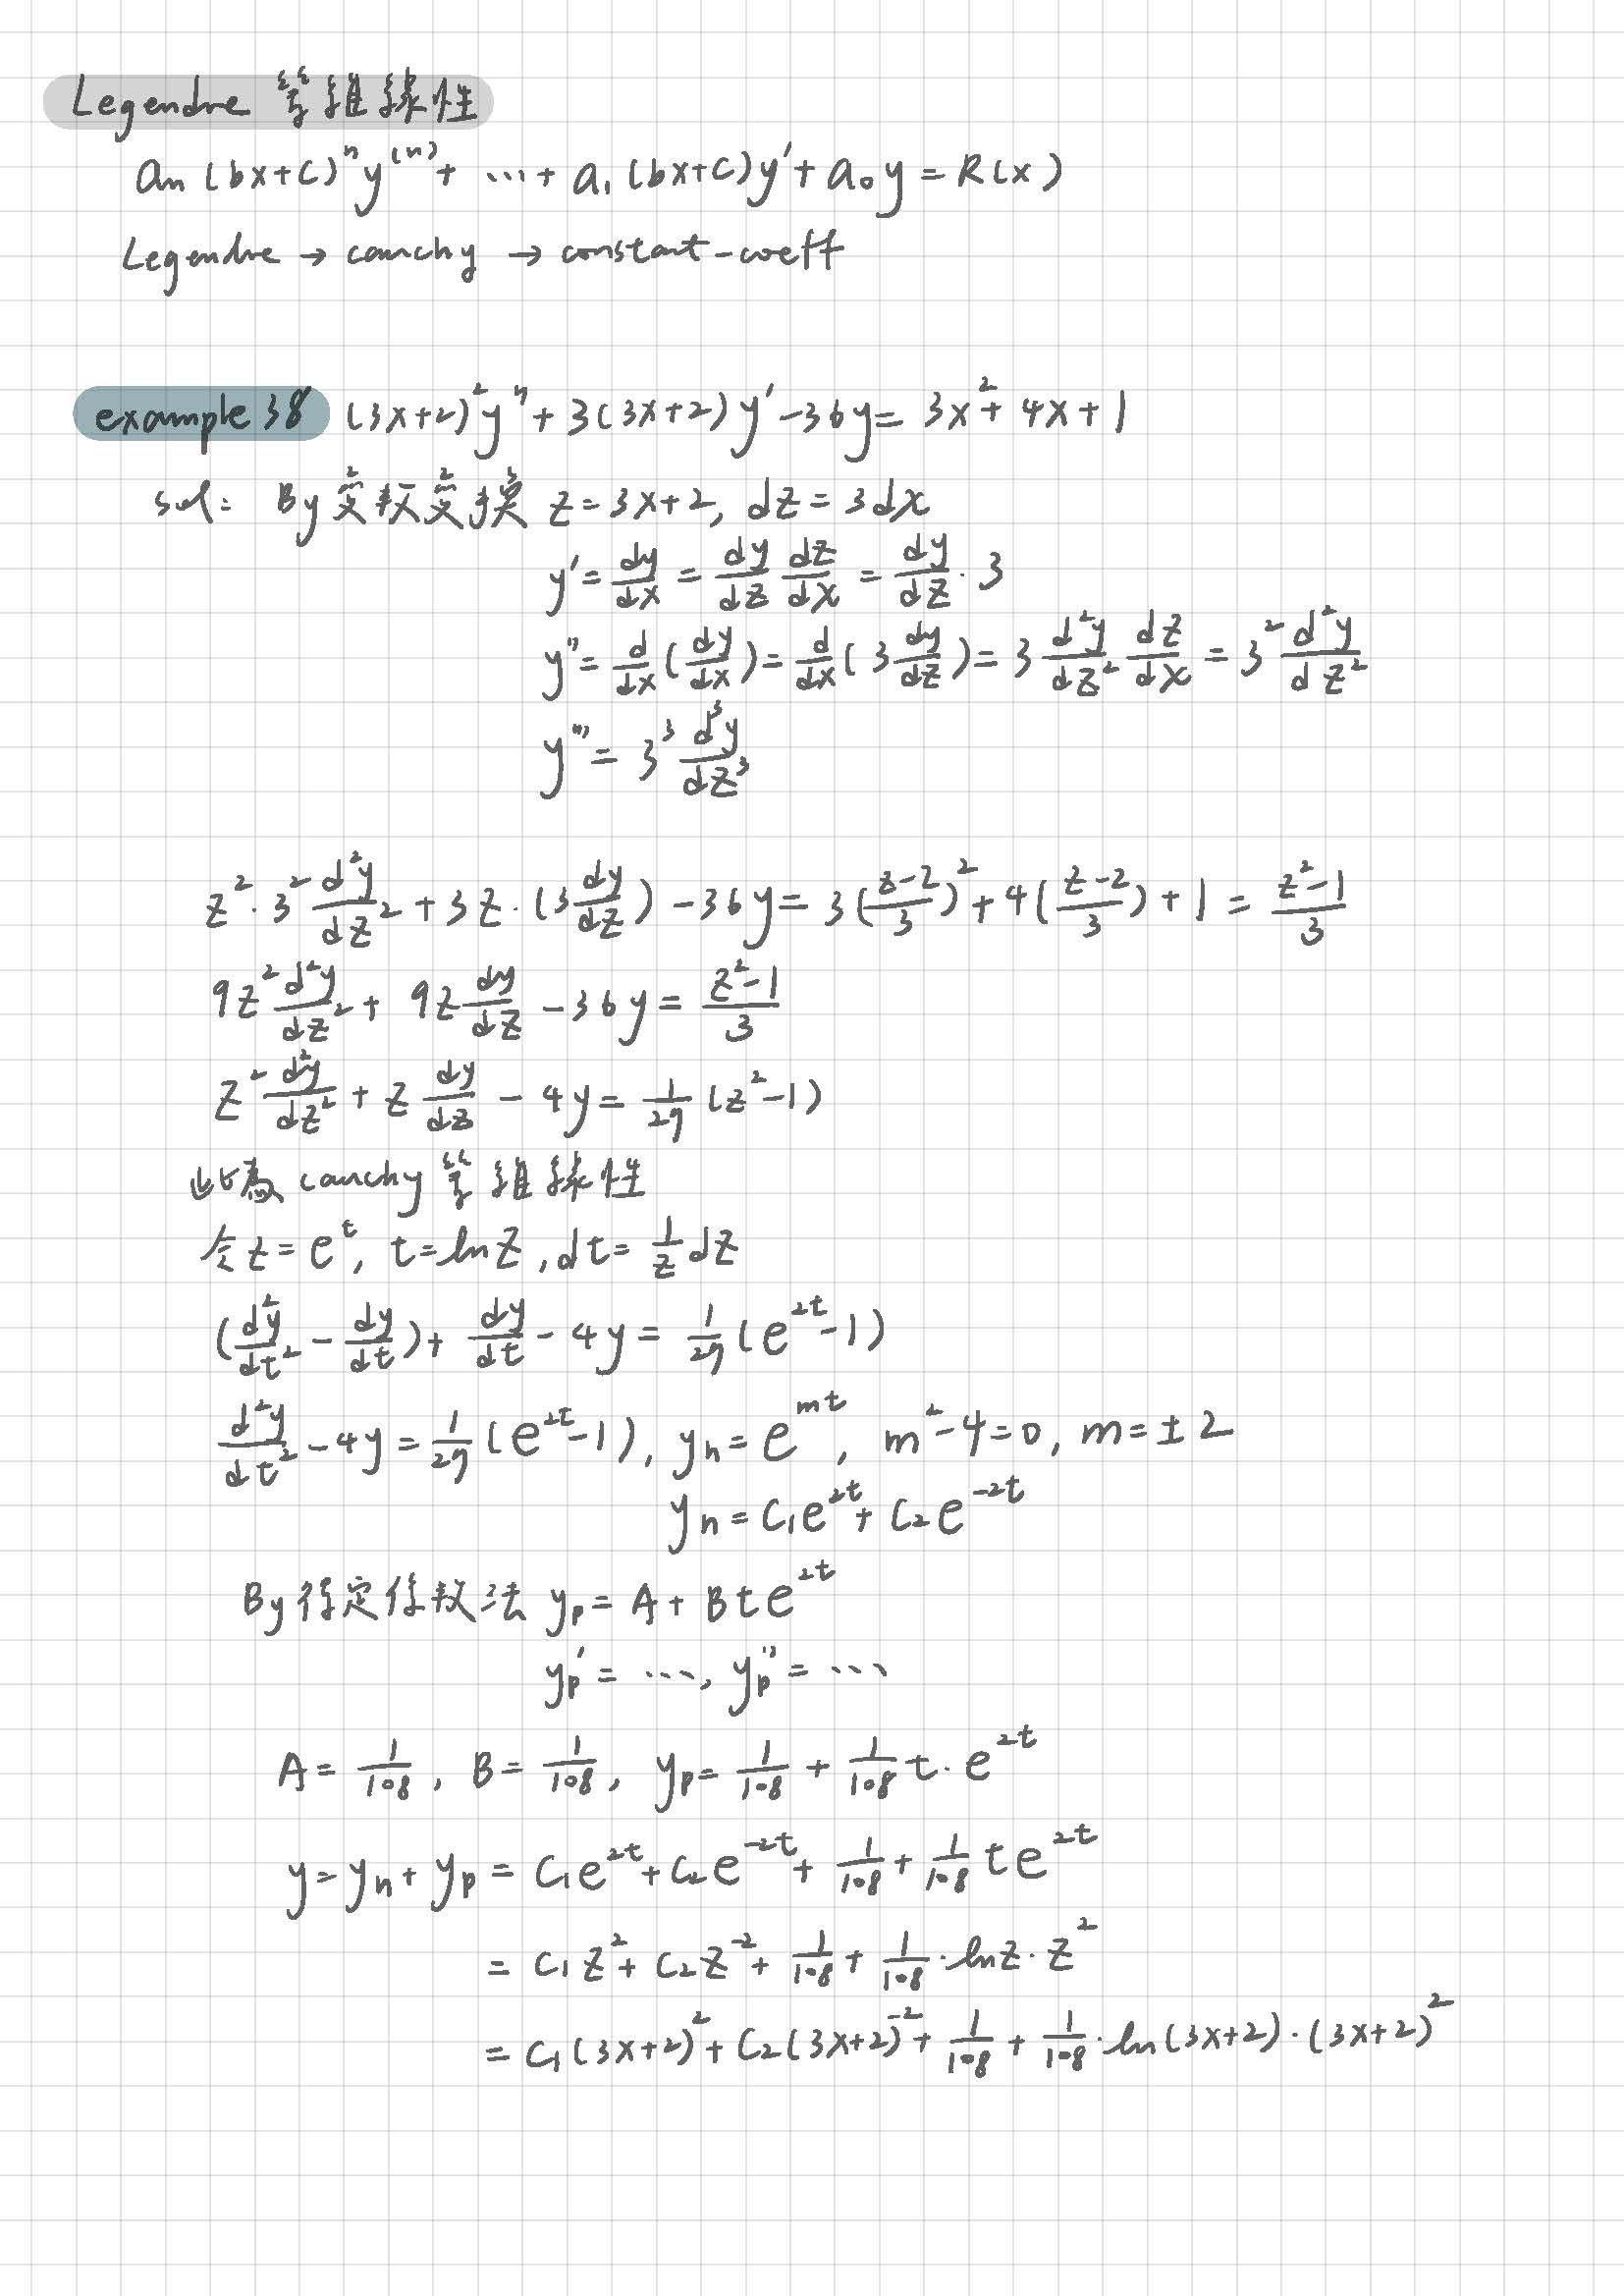 Legendre 等維線性
an (bx+c)ⁿ y⁽ⁿ⁾ + ⋯ + a₁ (bx+c) y' + a₀ y = R(x)
Legendre → cauchy → constant-coeff
example 38 (3x+2)² y'' + 3(3x+2) y' - 36y = 3x² + 4x + 1
sol: By 變數變換 z = 3x+2, dz = 3dx
y' = dy/dx = dy/dz dz/dx = dy/dz · 3
y'' = d/dx (dy/dx) = d/dx (3 dy/dz) = 3 d²y/dz² dz/dx = 3² d²y/dz²
y''' = 3³ d³y/dz³
z² · 3² d²y/dz² + 3z · (3 dy/dz) - 36y = 3((z-2)/3)² + 4((z-2)/3) + 1 = (z²-1)/3
9z² d²y/dz² + 9z dy/dz - 36y = (z²-1)/3
z² d²y/dz² + z dy/dz - 4y = 1/27 (z²-1)
此為 cauchy 等維線性
令 z = eᵗ, t = ln z, dt = 1/z dz
(d²y/dt² - dy/dt) + dy/dt - 4y = 1/27 (e²ᵗ - 1)
d²y/dt² - 4y = 1/27 (e²ᵗ - 1), yh = eᵐᵗ, m² - 4 = 0, m = ± 2
yh = c₁e²ᵗ + c₂e⁻²ᵗ
By 待定係數法 yp = A + Bte²ᵗ
yp' = ⋯, yp'' = ⋯
A = 1/108, B = 1/108, yp = 1/108 + 1/108 t · e²ᵗ
y = yh + yp = c₁e²ᵗ + c₂e⁻²ᵗ + 1/108 + 1/108 te²ᵗ
= c₁z² + c₂z⁻² + 1/108 + 1/108 · ln z · z²
= c₁(3x+2)² + c₂(3x+2)⁻² + 1/108 + 1/108 · ln(3x+2) · (3x+2)²